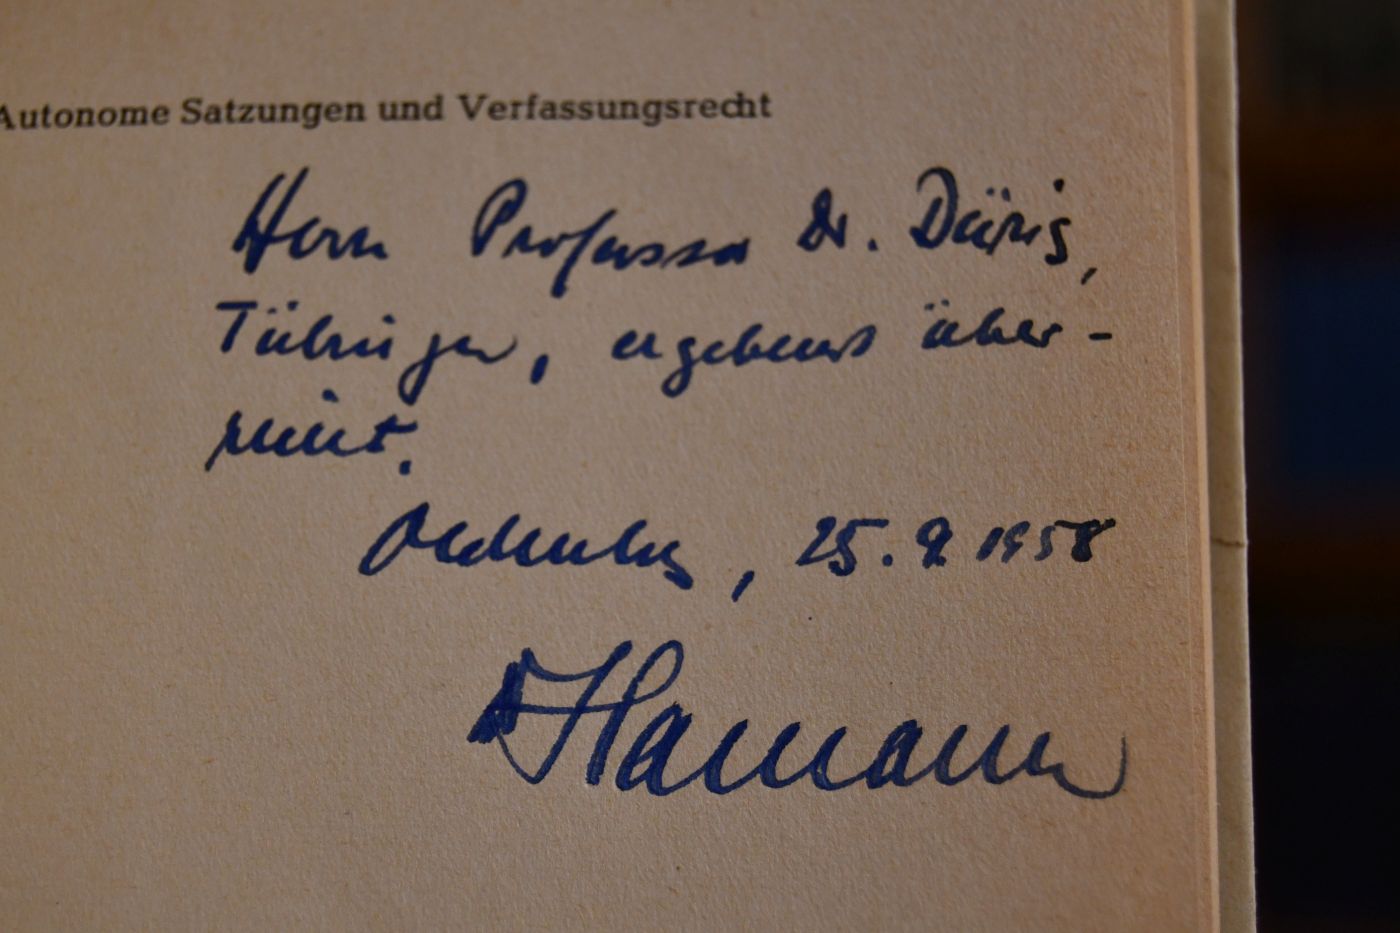 Autonome Satzungen und Verfassungsrecht
Herrn Professor Dr. Dürig,
Tübingen, ergebenst über-
reicht.
Oldenburg, 25.9.1958
Dr Hamann